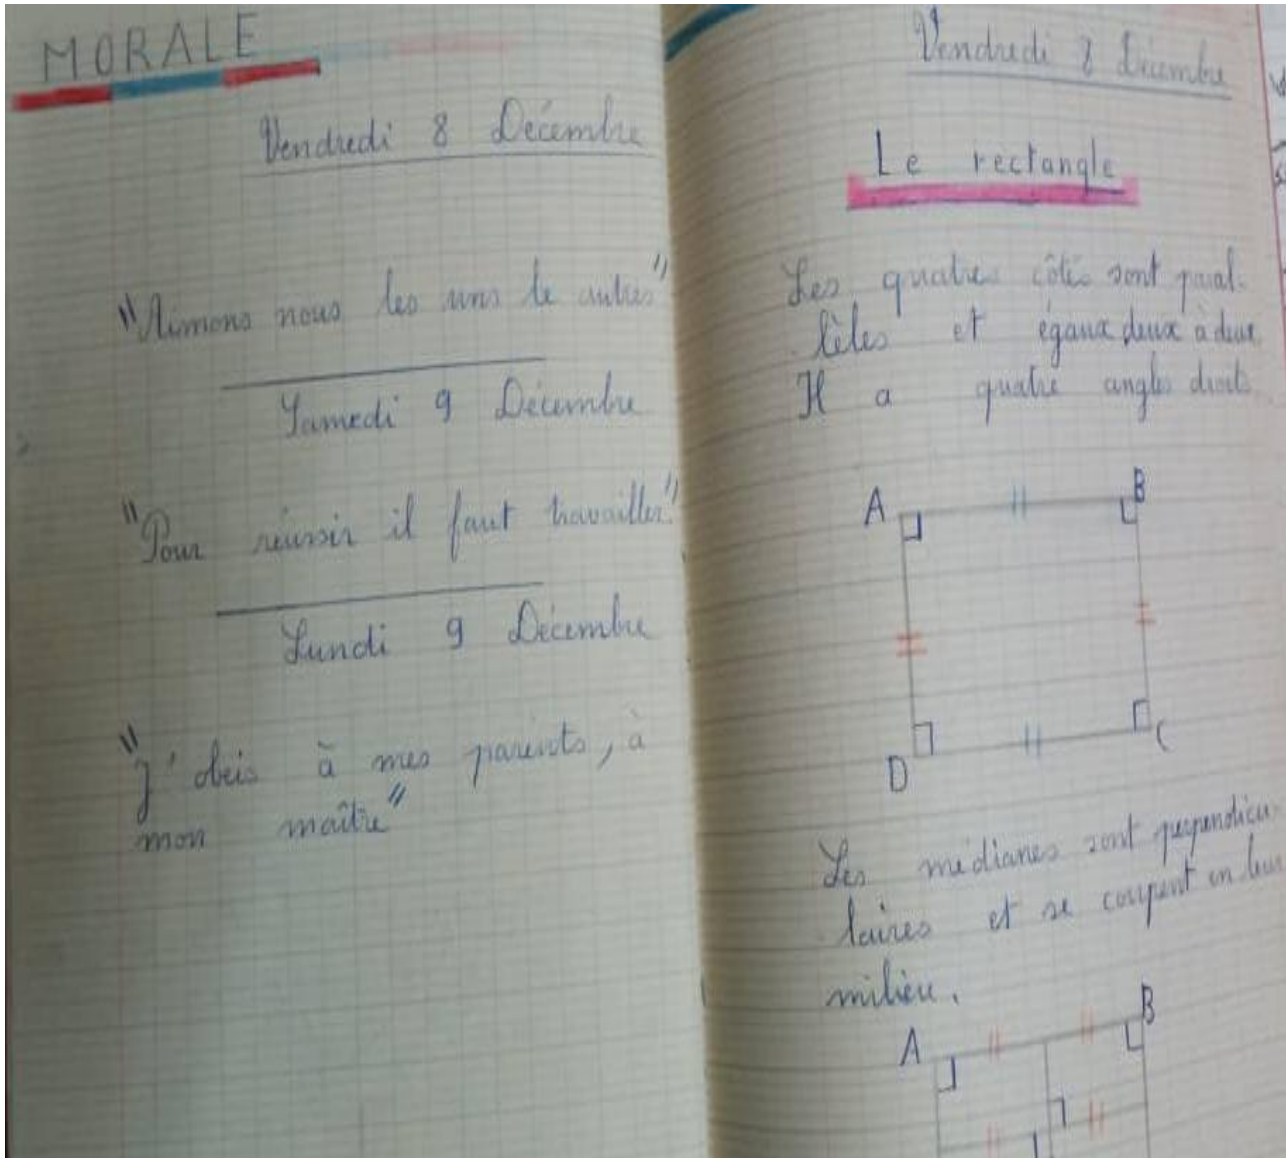 MORALE
Vendredi 8 Décembre
"Aimons nous les uns le autres"
Samedi 9 Décembre
"Pour réussir il faut travailler"
Lundi 9 Décembre
"J'obeis à mes parents, à
mon maître"
Vendredi 8 Décembre
Le rectangle
Les quatre côtés sont paral-
lèles et égaux deux à deux
Il a quatre angles droits
A B
D C
Les médianes sont perpendicu
laires et se coupent en leur
milieu.
A B